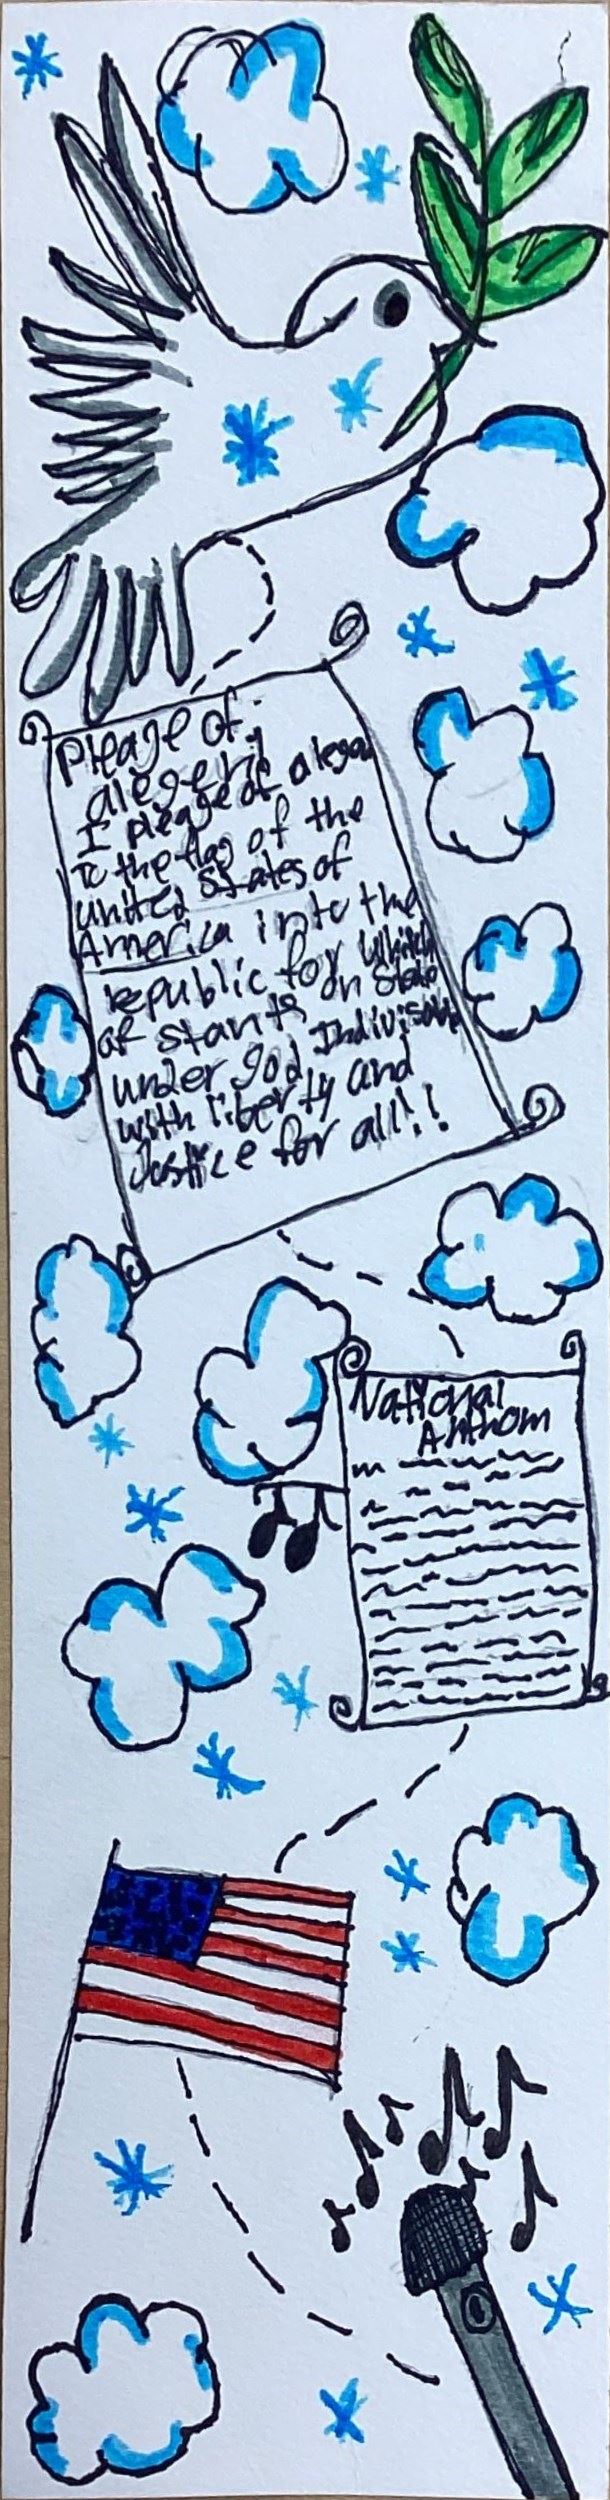 Pleage of:
alegeny
I pleage of alega
To the flag of the
united states of
America into the
republic for which
at stants on state
under god Indivisau
with liberty and
Justice for all!!
National
Anthom